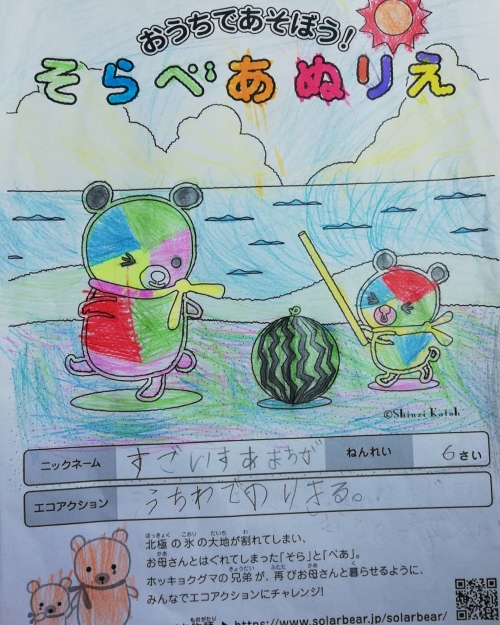 おうちであそぼう!
そらべあぬりえ
©Shinzi Katoh
ニックネーム
ねんれい 6さい
エコアクション うちわでのりきる。
北極の氷の大地が割れてしまい、
お母さんとはぐれてしまった「そら」と「べあ」。
ホッキョクグマの兄弟が、再びお母さんと暮らせるように、
みんなでエコアクションにチャレンジ!
▶https://www.solarbear.jp/solarbear/